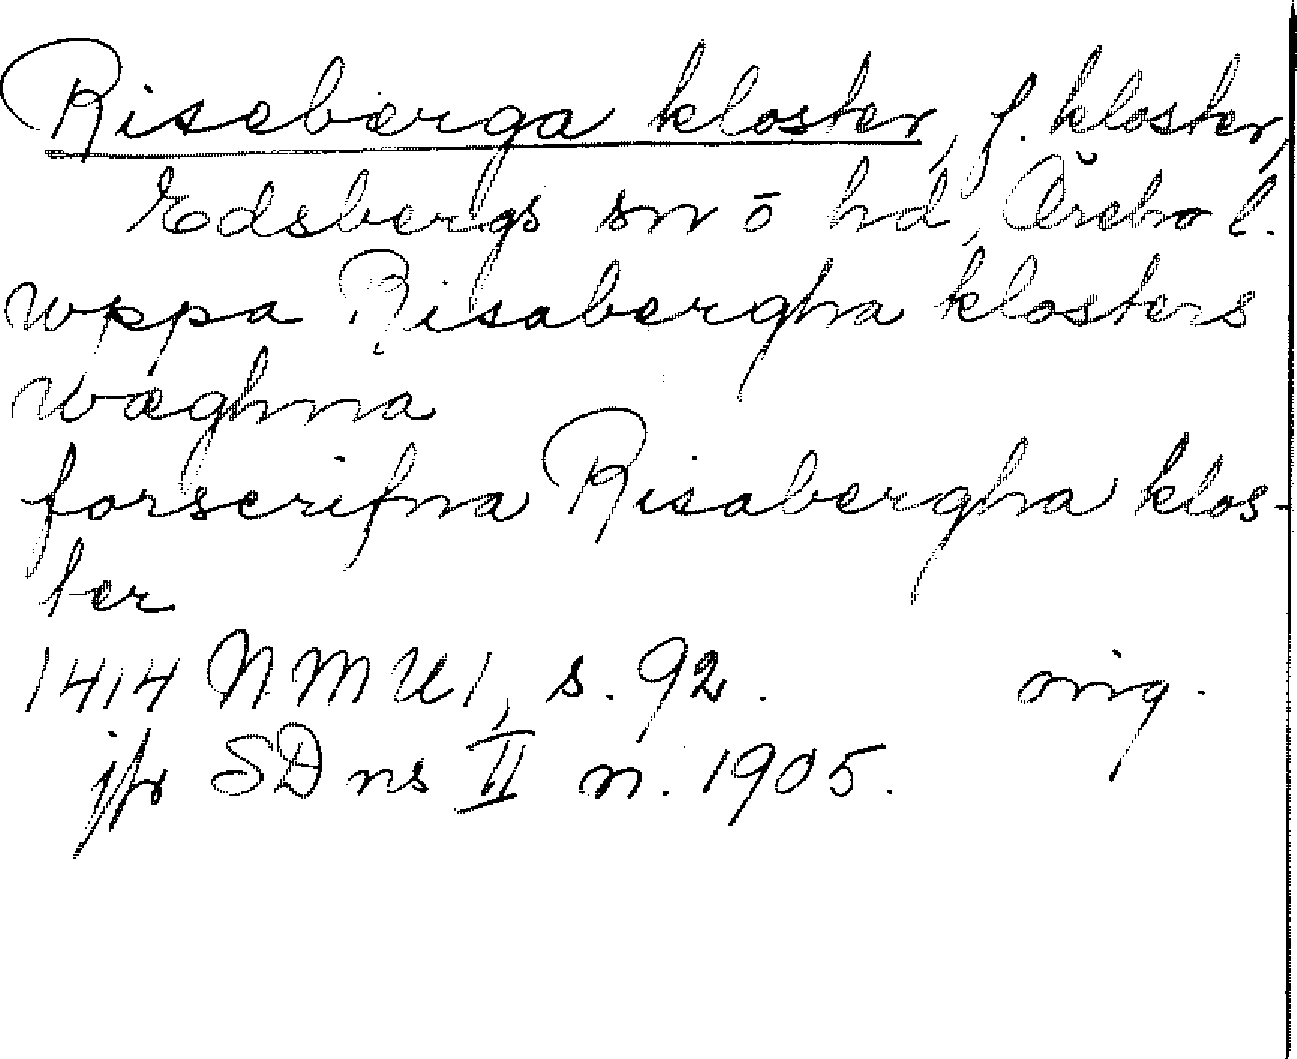 Riseberga kloster, f. kloster,
Edsbergs sn ō hd, Örebro l.
uppa Risabergha klosters
wæghna
forscrifna Risabergha klos-
ter
1414 NMU 1, s. 92. orig.
jfr SD ns II n. 1905.